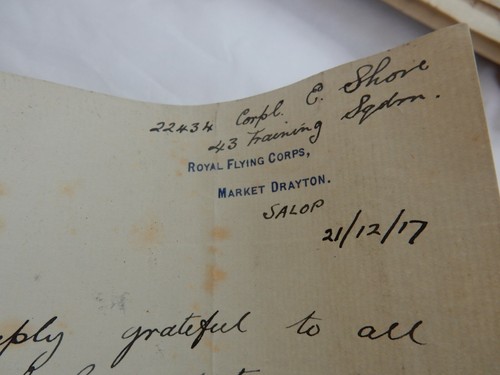 22434 Corpl. E. Shore
43 Training Sqdrn.
ROYAL FLYING CORPS,
MARKET DRAYTON.
SALOP
21/12/17
grateful to all